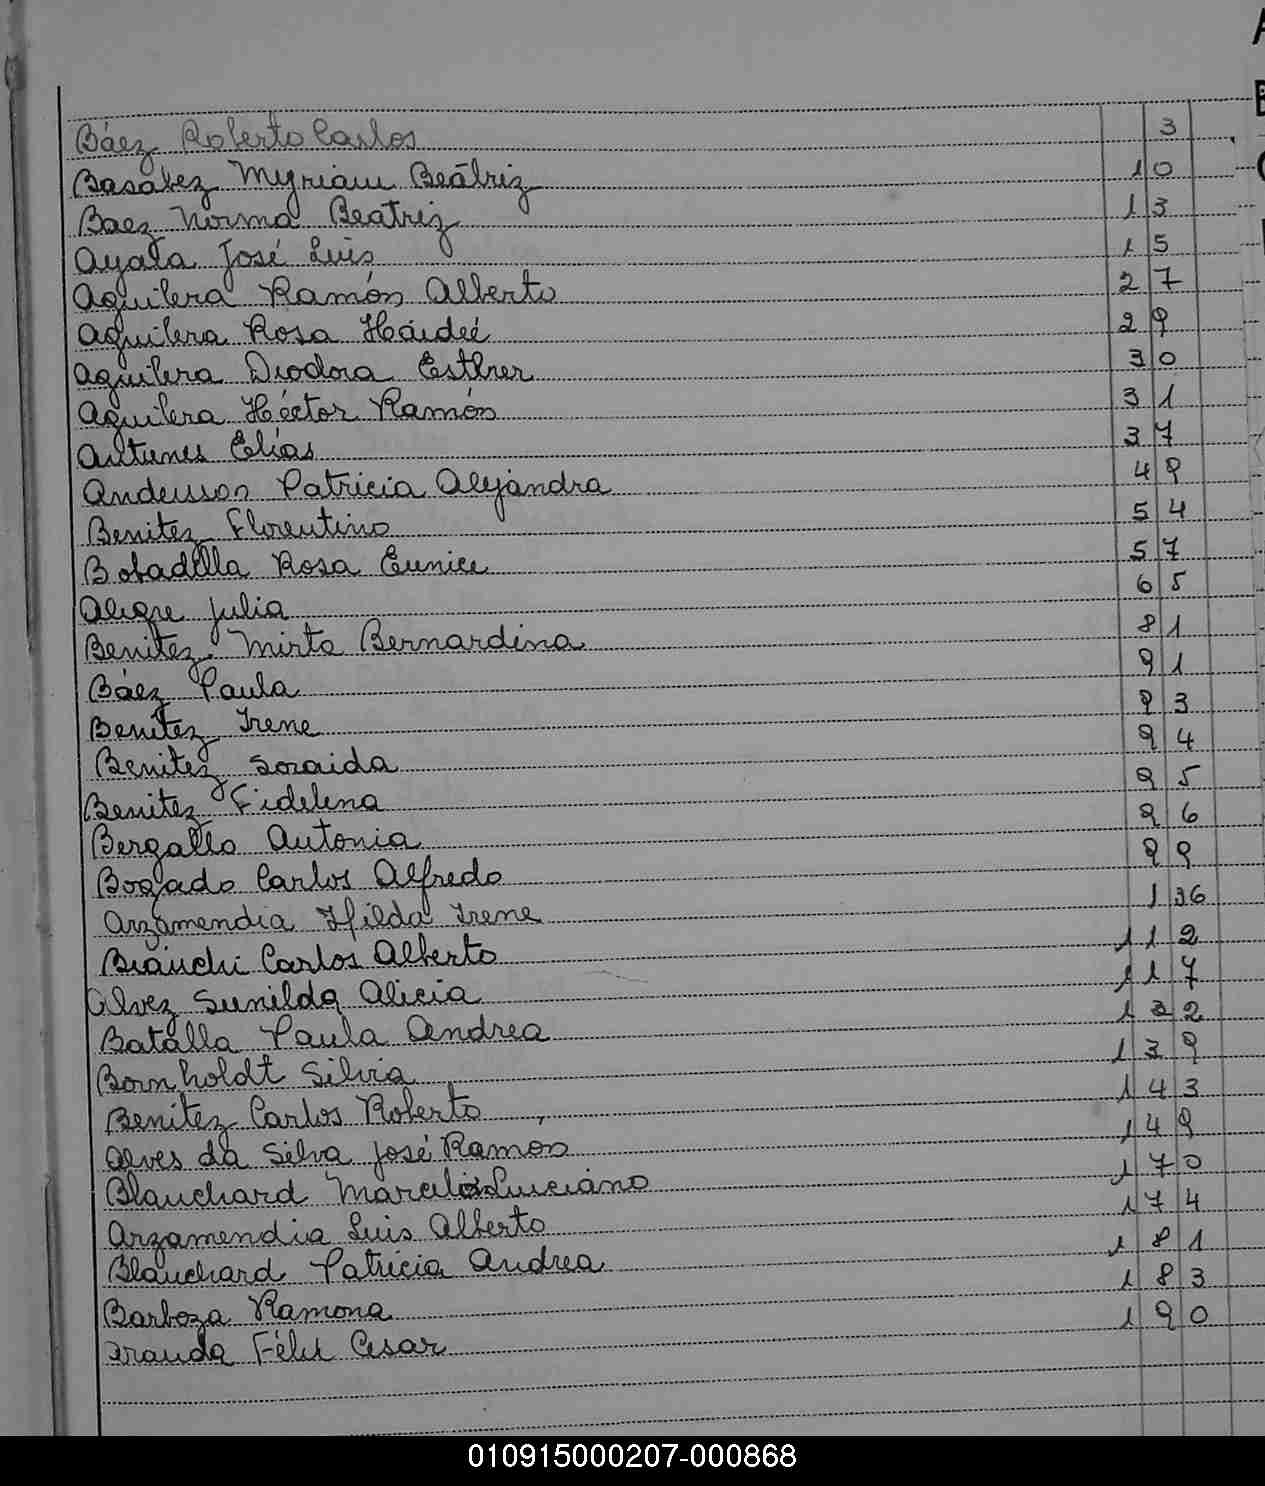 Báez Roberto Carlos 3
Basabez Myriam Beatriz 10
Baez Norma Beatriz 13
Ayala José Luis 15
Aguilera Ramón Alberto 27
Aguilera Rosa Háideé 29
Aguilera Diodora Esther 30
Aguilera Héctor Ramón 31
Antunes Elías 37
Anderson Patricia Alejandra 49
Benitez Florentino 54
Bobadilla Rosa Eunice 57
Alegre Julia 65
Benitez Mirta Bernardina 81
Báez Paula 91
Benitez Irene 93
Benitez Soraida 94
Benitez Fidelina 95
Bergallo Antonia 96
Bogado Carlos Alfredo 99
Arzamendia Hilda Irene
Bianchi Carlos Alberto 112
Alvez Sunilda Alicia 117
Batalla Paula Andrea
Bornholdt Silvia 139
Benitez Carlos Roberto 143
Alves da Silva José Ramon 149
Blanchard Luciano 170
Arzamendia Luis Alberto 174
Blanchard Patricia Andrea 181
Barboza Ramona 183
Aranda Félix Cesar 190
A
B
010915000207-000868